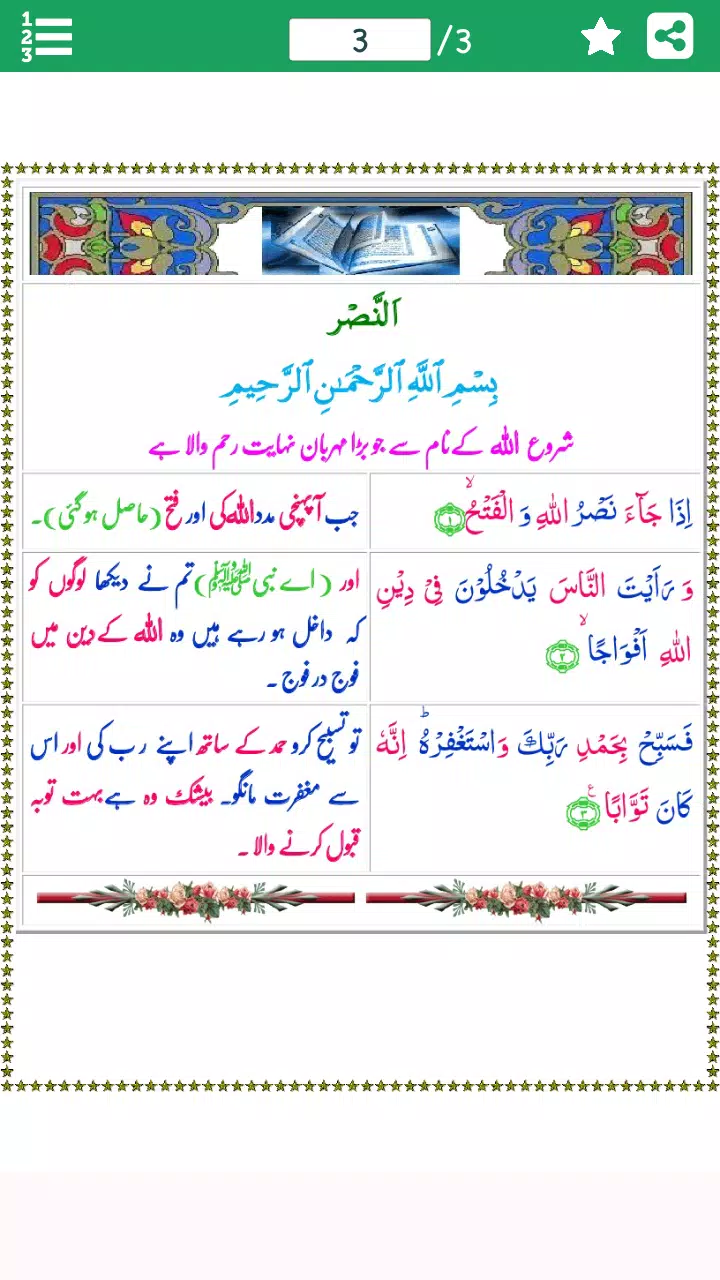 1
2
3
3 /3
اَلنَّصْر
بِسْمِ ٱللَّهِ ٱلرَّحْمَـٰنِ ٱلرَّحِيمِ
شروع اللہ کے نام سے جو بڑا مہربان نہایت رحم والا ہے
اِذَا جَآءَ نَصْرُ اللهِ وَ الْفَتْحُۙ ۝۱
جب آپہنچی مدد اللہ کی اور فتح (حاصل ہو گئی)۔
وَ رَاَيْتَ النَّاسَ يَدْخُلُوْنَ فِيْ دِيْنِ
اللهِ اَفْوَاجًاۙ ۝۲
اور (اے نبی ﷺ) تم نے دیکھا لوگوں کو
کہ داخل ہو رہے ہیں وہ اللہ کے دین میں
فوج در فوج ۔
فَسَبِّحْ بِحَمْدِ رَبِّكَ وَاسْتَغْفِرْهُؕ اِنَّهٗ
كَانَ تَوَّابًا۠ ۝۳
تو تسبیح کرو حمد کے ساتھ اپنے رب کی اور اس
سے مغفرت مانگو۔ بیشک وہ ہے بہت توبہ
قبول کرنے والا ۔